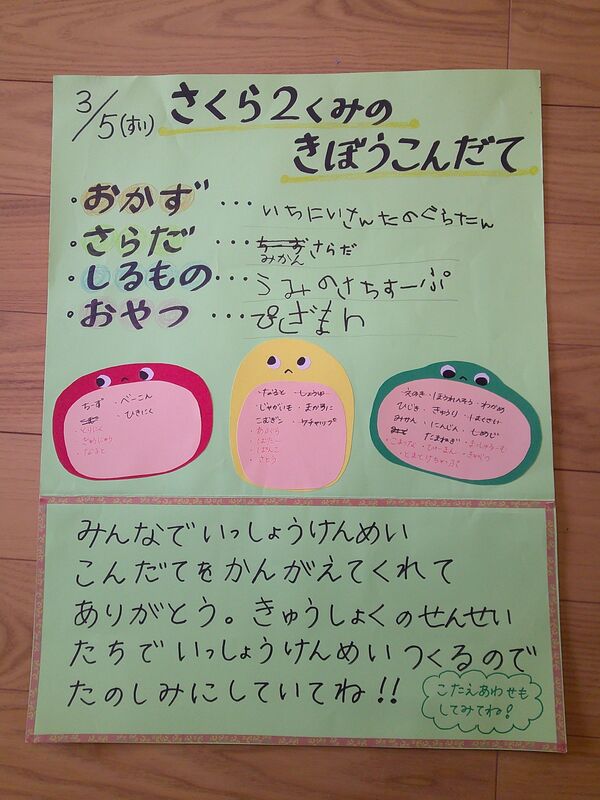 3/5(すい) さくら2くみの
きぼうこんだて
・おかず・・・いちにいさんたのぐらたん
・さらだ・・・みかんさらだ
・しるもの・・・うみのさちすーぷ
・おやつ・・・ぴざまん
ちーず ・べーこん
・ひきにく
・とりにく
・ぎゅうにゅう
・なると
・なると ・しょうゆ
・じゃがいも ・まかろに
・こむぎこ ・ケチャップ
・あぶら
・ばたー
・ぱんこ
・さとう
・えのき ・ほうれんそう ・わかめ
ひじき ・きゅうり ・はくさい
みかん ・にんじん ・しめじ
たまねぎ ・まっしゅるーむ
・こまつな ・ぴーまん ・きゃべつ
・とまとけちゃっぷ
みんなでいっしょうけんめい
こんだてをかんがえてくれて
ありがとう。きゅうしょくのせんせい
たちでいっしょうけんめいつくるので
たのしみにしていてね!!
こたえあわせも
してみてね!